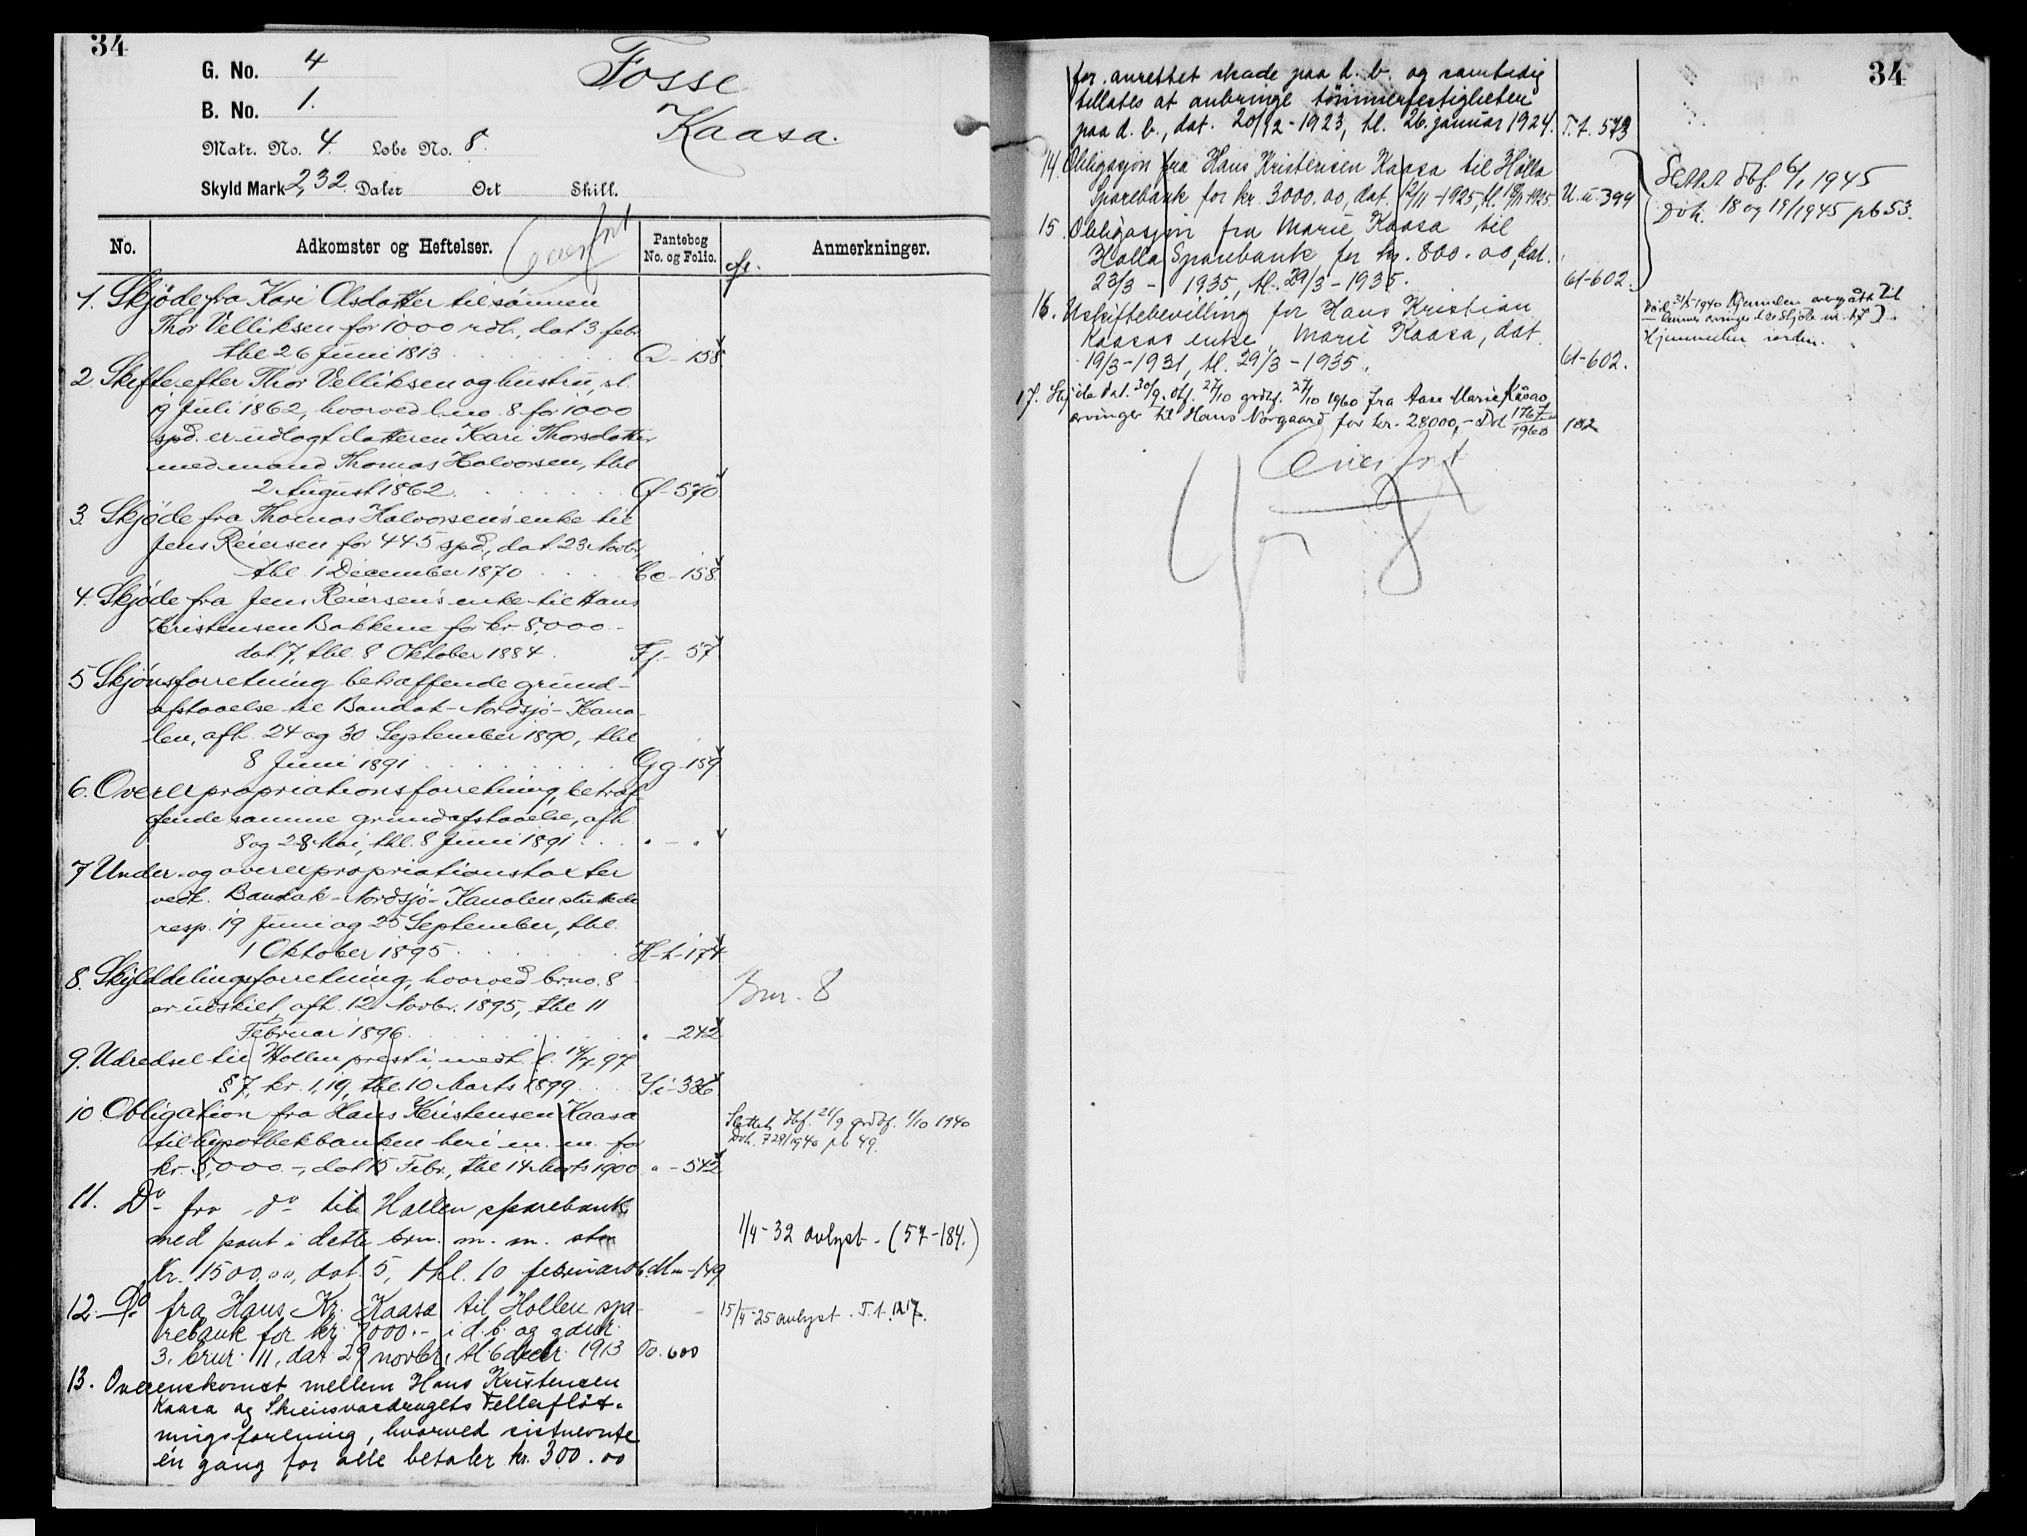 34
G. No. 4
Fosse
B. No. 1.
Kaasa.
Matr. No. 4. Lobe No. 8.
Skyld Mark 2,32 Daler Ort Skill.
Overført
No. Adkomster og Heftelser. Pantebog No. og Folio. Anmerkninger.
1. Skjöde fra Kari Olsdatter til sönnen
Thor Velliksen for 1000 rdb., dat 3 febr.
tbl 26 Juni 1813 Q-158
2 Skifte efter Thor Velliksen og hustru, sl.
19 Juli 1862, hvorved l.no. 8 for 1000
spd. er udlagt datteren Kari Thorsdatter
med mand Thomas Halvorsen, tbl
2 August 1862. Cf-570
3. Skjöde fra Thomas Halvorsens enke til
Jens Reiersen for 445 spd., dat 23 Novbr,
tbl. 1 December 1870 Cc-158
4. Skjöde fra Jens Reiersen's enke til Hans
Kristensen Bakkene for kr 8,000 -
dat 7, tbl. 8 Oktober 1884. Fj.-57
5 Skjönsforretning betræffende grund-
afstaaelse til Bandak-Nordsjö-Kana-
len, afh. 24 og 30 September 1890, tbl
8 Juni 1891 Gg-159
6. Overexpropriationsforretning, betræf-
fende samme grundafstaaelse, afh.
8 og 28 Mai, tbl. 8 Juni 1891. " - "
7 Under- og overexpropriationstaxter
vedk. Bandak-Nordsjö-Kanalen sluttede
resp. 19 Juni og 25 September, tbl.
1 Oktober 1895 H-h-174
8. Skylddelingsforretning, hvorved brno. 8
er udskilt, afh. 12 Novbr. 1895, tbl 11
Februar 1896. " -242
Bnr. 8
9. Udredsel til Hollen prest i, medh. l. 14/7-97
§ 7, kr. 1,19, tbl 10 Marts 1899 Yi-336
10 Obligation fra Hans Kristensen Kaasa
til hypothekbanken heri m. m. for
kr. 5,000 -, dat 15 Febr., tbl 14 Marts 1900 " -542
Slettet dbf. 21/9 grdbf. 1/10 1940
Dok. 729/1940 pb 49.
11. Do fra do til Hollen sparebank
med pant i dette brn. m. m. stor
Kr. 1500,00, dat. 5, thl. 10 februar 06. Mm-149
1/4-32 avlyst - (57-184.)
12. Do fra Hans Kr. Kaasa til Hollen spa-
rebank for kr. 7000.- i d. b. og gdnr.
3. brnr. 11, dat 29 novbr, tl 6 decbr. 1913 Oo. 600
15/4-25 avlyst. T.t. 1217.
13. Overenskomst mellem Hans Kristensen
Kaasa og Skiensvasdragets Fellesfløt-
ningsforening, hvorved sistnevnte
én gang for alle betaler kr. 300.00
34
for anrettet skade paa d. b. og samtidig
tillates at anbringe tømmerfestigheter
paa d. b., dat. 20/12-1923, tl. 26. januar 1924. T.t. 573
14. Obligasjon fra Hans Kristensen Kaasa til Holla
Sparebank for kr. 3000.00, dat. 12/11-1925, tl. 18/11-1925. U.u. 394
Slettet dbf. 6/1 1945
Dok. 18 og 19/1945 pb 53.
15. Obligasjon fra Marie Kaasa til
Holla Sparebank for kr. 800.00, dat.
23/3 - 1935, tl. 29/3-1935. 61-602.
16. Uskiftebevilling for Hans Kristian
Kaasas enke, Marie Kaasa, dat.
19/3-1931, tl. 29/3-1935. 61-602.
Hjemmelen
17. Skjøte dat. 30/9. dbf. 27/10 grdbf. 27/10 1960 fra Aase Marie Kåsas
arvinger til Hans Norgaard for kr. 28000,- Dok 1767/1960 182
Overført